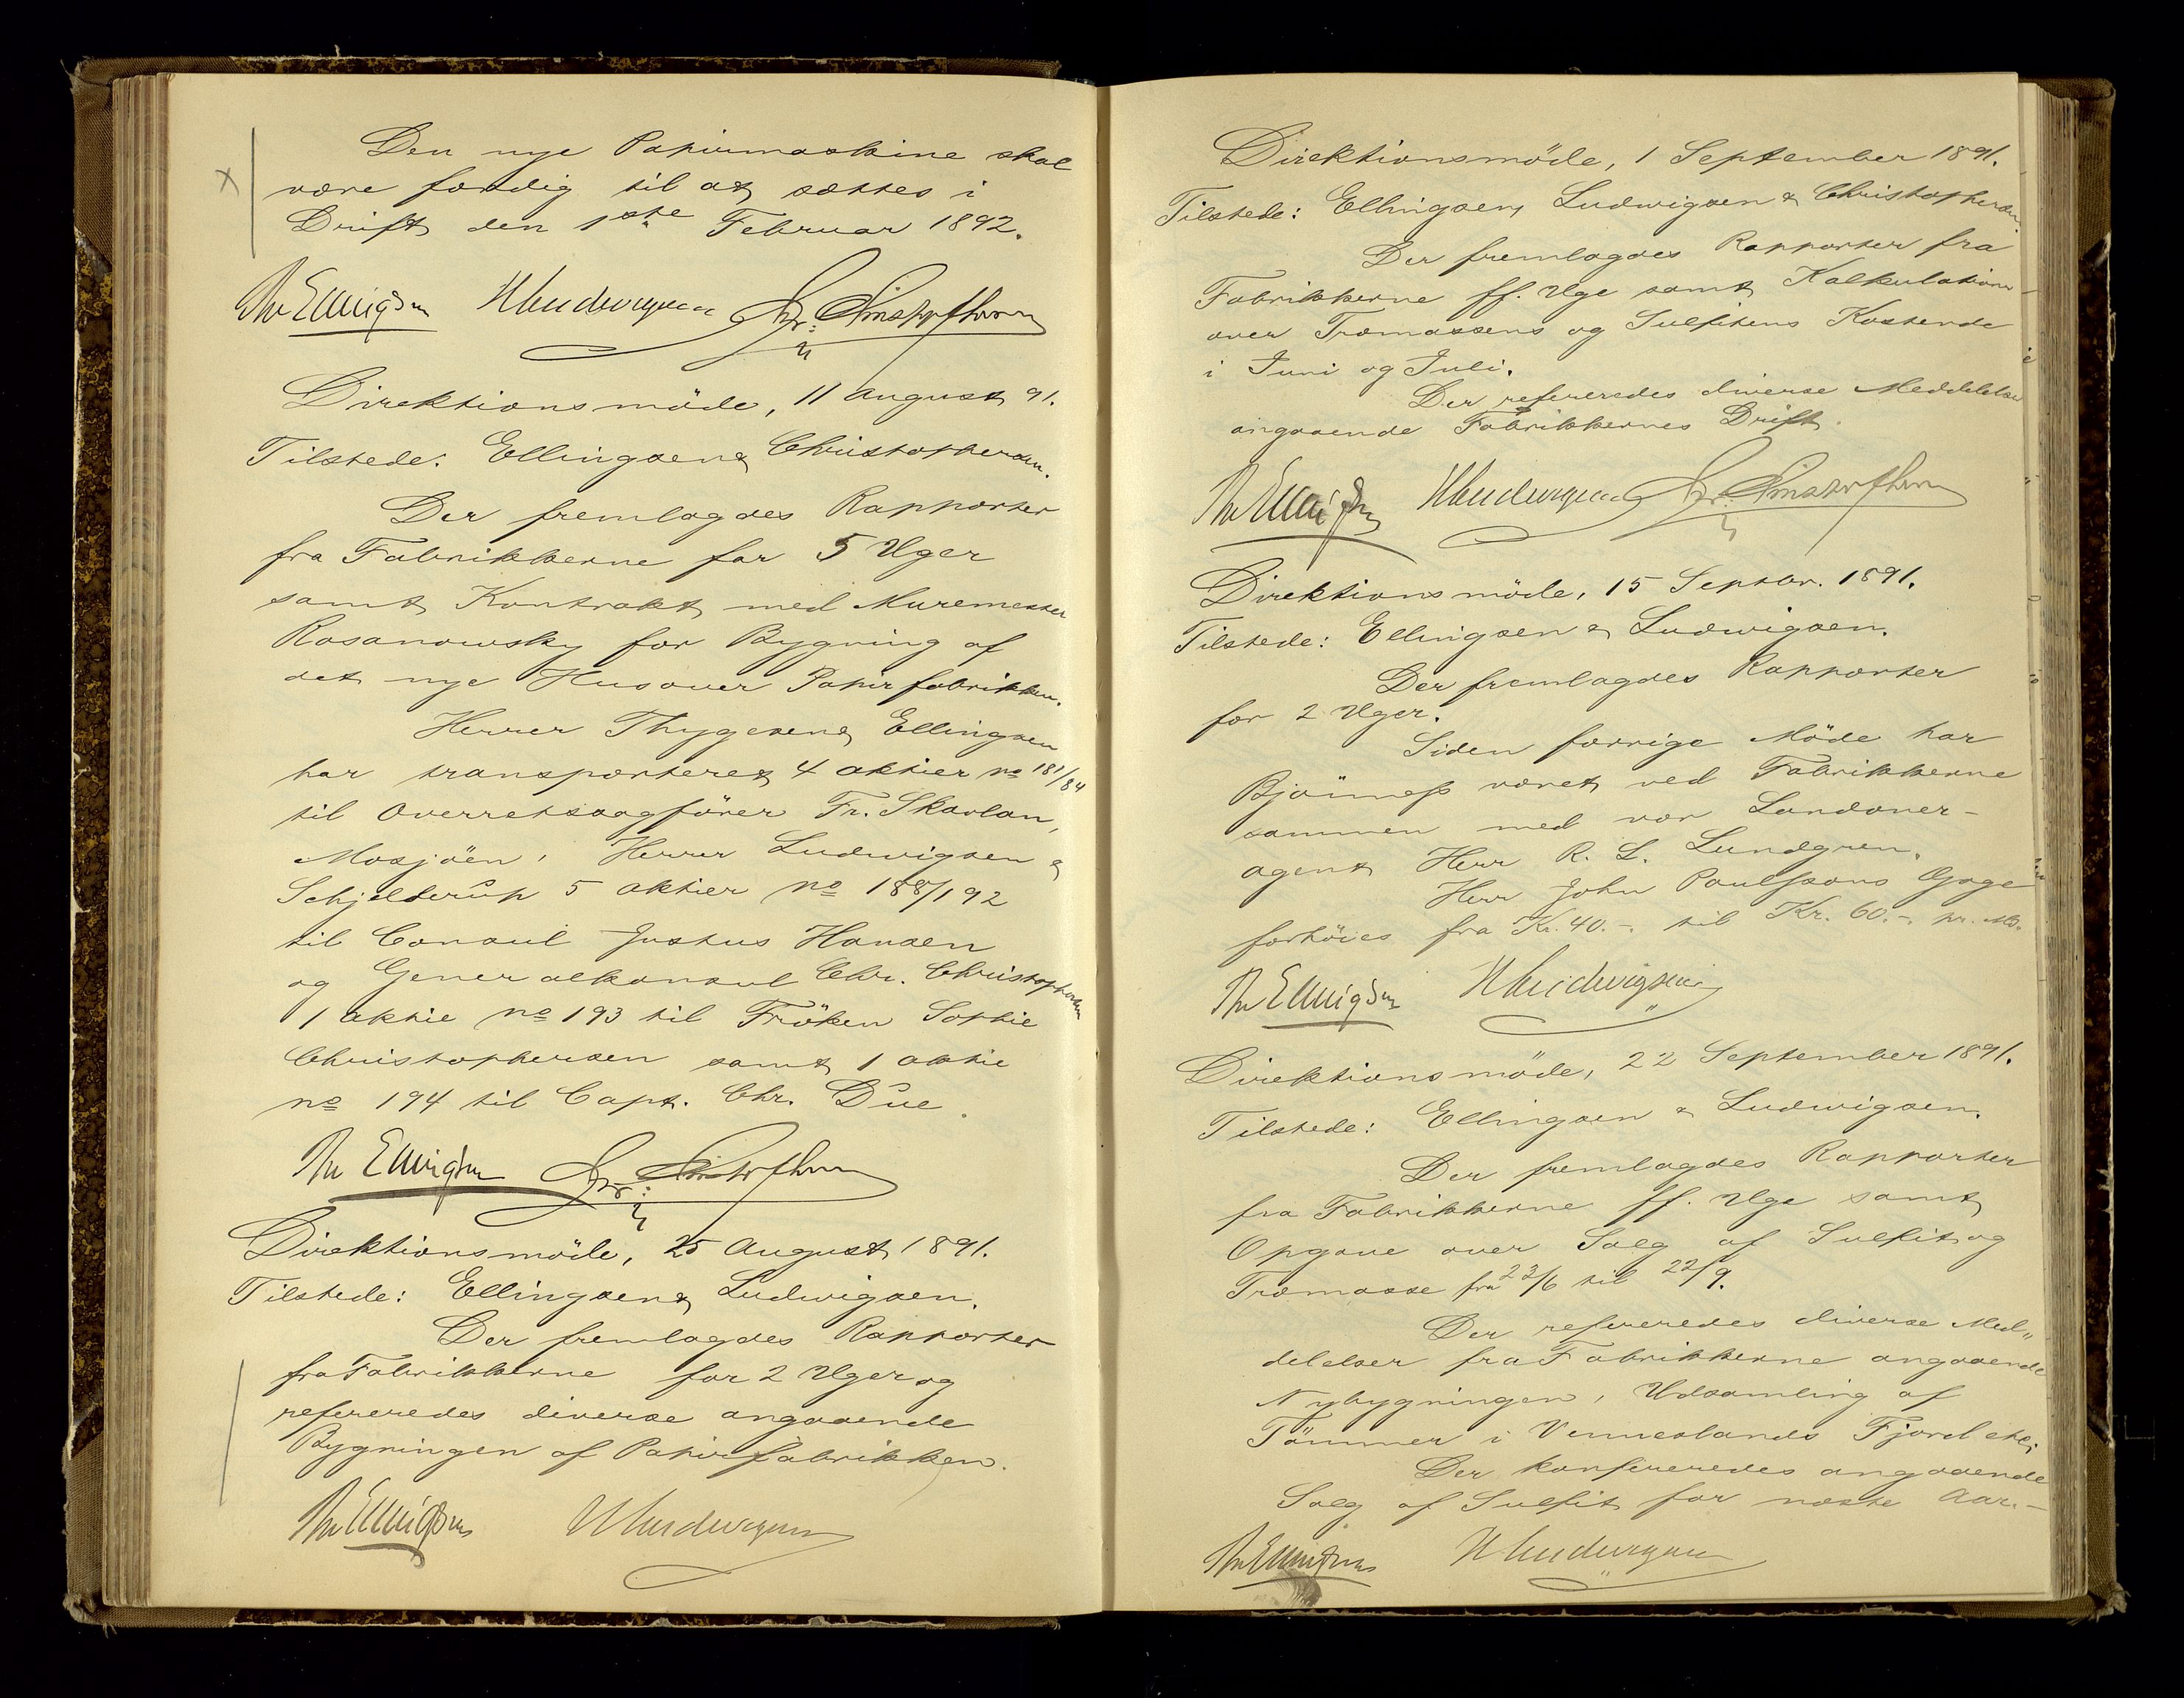 Den nye Papirmaskine skal
være færdig til at sættes i
Drift den 1ste Februar 1892.
Th Ellingsen HLudwigsen Chr. Christophersen
Direktionsmöde, 11 August 91.
Tilstede: Ellingsen & Christophersen.
Der fremlagdes Rapporter
fra Fabrikkerne for 5 Uger
samt Kontrakt med Muremester
Rosanowsky for Bygning af
det nye Hus over Papirfabrikken.
Herrer Thygesen & Ellingsen
har transporteret 4 aktier no 181/84
til Overretssagförer Fr. Skavlan,
Mosjöen, Herrer Ludwigsen &
Schjelderup 5 aktier no 188/192
til Consul Justus Hansen
og Generalkonsul Chr. Christophersen
1 aktie no 193 til Fröken Sophie
Christophersen samt 1 aktie
no 194 til Capt. Chr. Due.
Th Ellingsen Chr. Christophersen
Direktionsmöde, 25 August 1891.
Tilstede: Ellingsen & Ludwigsen.
Der fremlagdes Rapporter
fra Fabrikkerne for 2 Uger og
refereredes diverse angaaende
Bygningen af Papirfabrikken.
Th Ellingsen HLudwigsen
Direktionsmöde, 1 September 1891.
Tilstede: Ellingsen, Ludwigsen & Christophersen.
Der fremlagdes Rapporter fra
Fabrikkerne ff. Uge samt Kalkulation
over Træmassens og Sulfitens Kostende
i Juni og Juli.
Der refereredes diverse Meddelelser
angaaende Fabrikkernes Drift.
Th Ellingsen HLudwigsen Chr. Christophersen
Direktionsmöde, 15 Septbr. 1891.
Tilstede: Ellingsen & Ludwigsen.
Der fremlagdes Rapporter
for 2 Uger.
Siden forrige Möde har
Björness været ved Fabrikkerne
sammen med vor Londoner-
agent Herr R. L. Lundgren.
Herr John Paulssons Gage
forhöies fra Kr. 40.-. til Kr. 60.-. pr. Md.
Th Ellingsen HLudwigsen
Direktionsmöde, 22 September 1891.
Tilstede: Ellingsen & Ludwigsen.
Der fremlagdes Rapporter
fra Fabrikkerne ff. Uge samt
Opgave over Salg af Sulfit og
Træmasse fra 23/6 til 22/9.
Der refereredes diverse Med„
delelser fra Fabrikkerne angaaende
Nybygningen, Udsamling af
Tömmer i Venneslands Fjord etc.
Der konfereredes angaaende
Salg af Sulfit for næste Aar.-
Th Ellingsen HLudwigsen